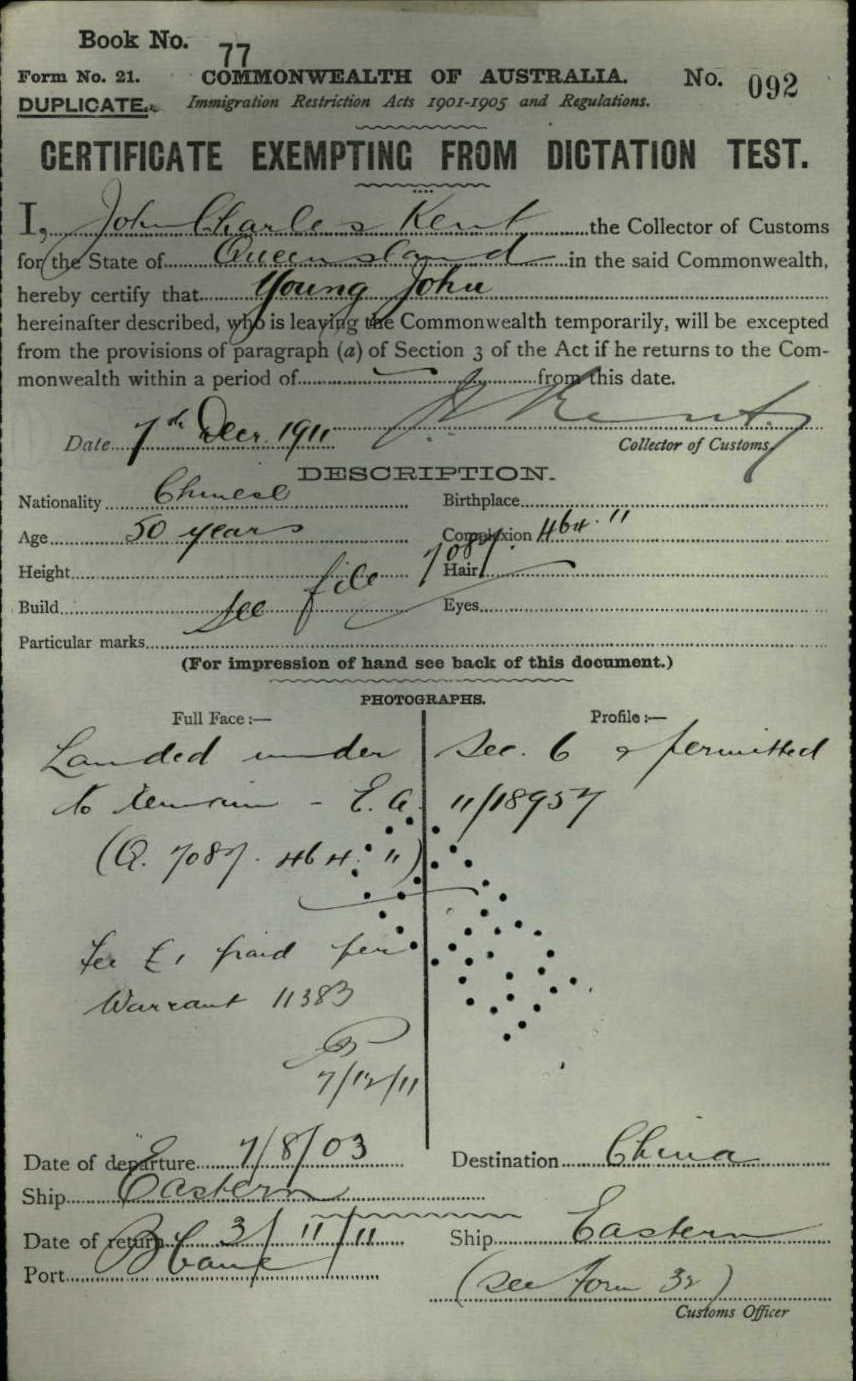 Book No. 77
Form No. 21. COMMONWEALTH OF AUSTRALIA. No. 092
DUPLICATE. Immigration Restriction Acts 1901-1905 and Regulations.
CERTIFICATE EXEMPTING FROM DICTATION TEST.
I, John Charles Kent the Collector of Customs
for the State of Queensland in the said Commonwealth,
hereby certify that Young John
hereinafter described, who is leaving the Commonwealth temporarily, will be excepted
from the provisions of paragraph (a) of Section 3 of the Act if he returns to the Com-
monwealth within a period of from this date.
Date 7th Decr. 1911 Kent
Collector of Customs,
DESCRIPTION.
Nationality Chinese Birthplace
Age 50 years Complexion 464. "
Height file 7087. Hair
Build See Eyes
Particular marks
(For impression of hand see back of this document.)
PHOTOGRAPHS.
Full Face :— Profile :—
Landed under Sec. 6 & permitted
to remain - E. A. 11/18957
(Q. 7087. 464. ")
fee £1 paid per
Warrant 11383
7/12/11
Date of departure 7/8/03 Destination China
Ship Eastern
Date of return 3/11/11 Ship Eastern
Port Bbane
(See Form 32)
Customs Officer